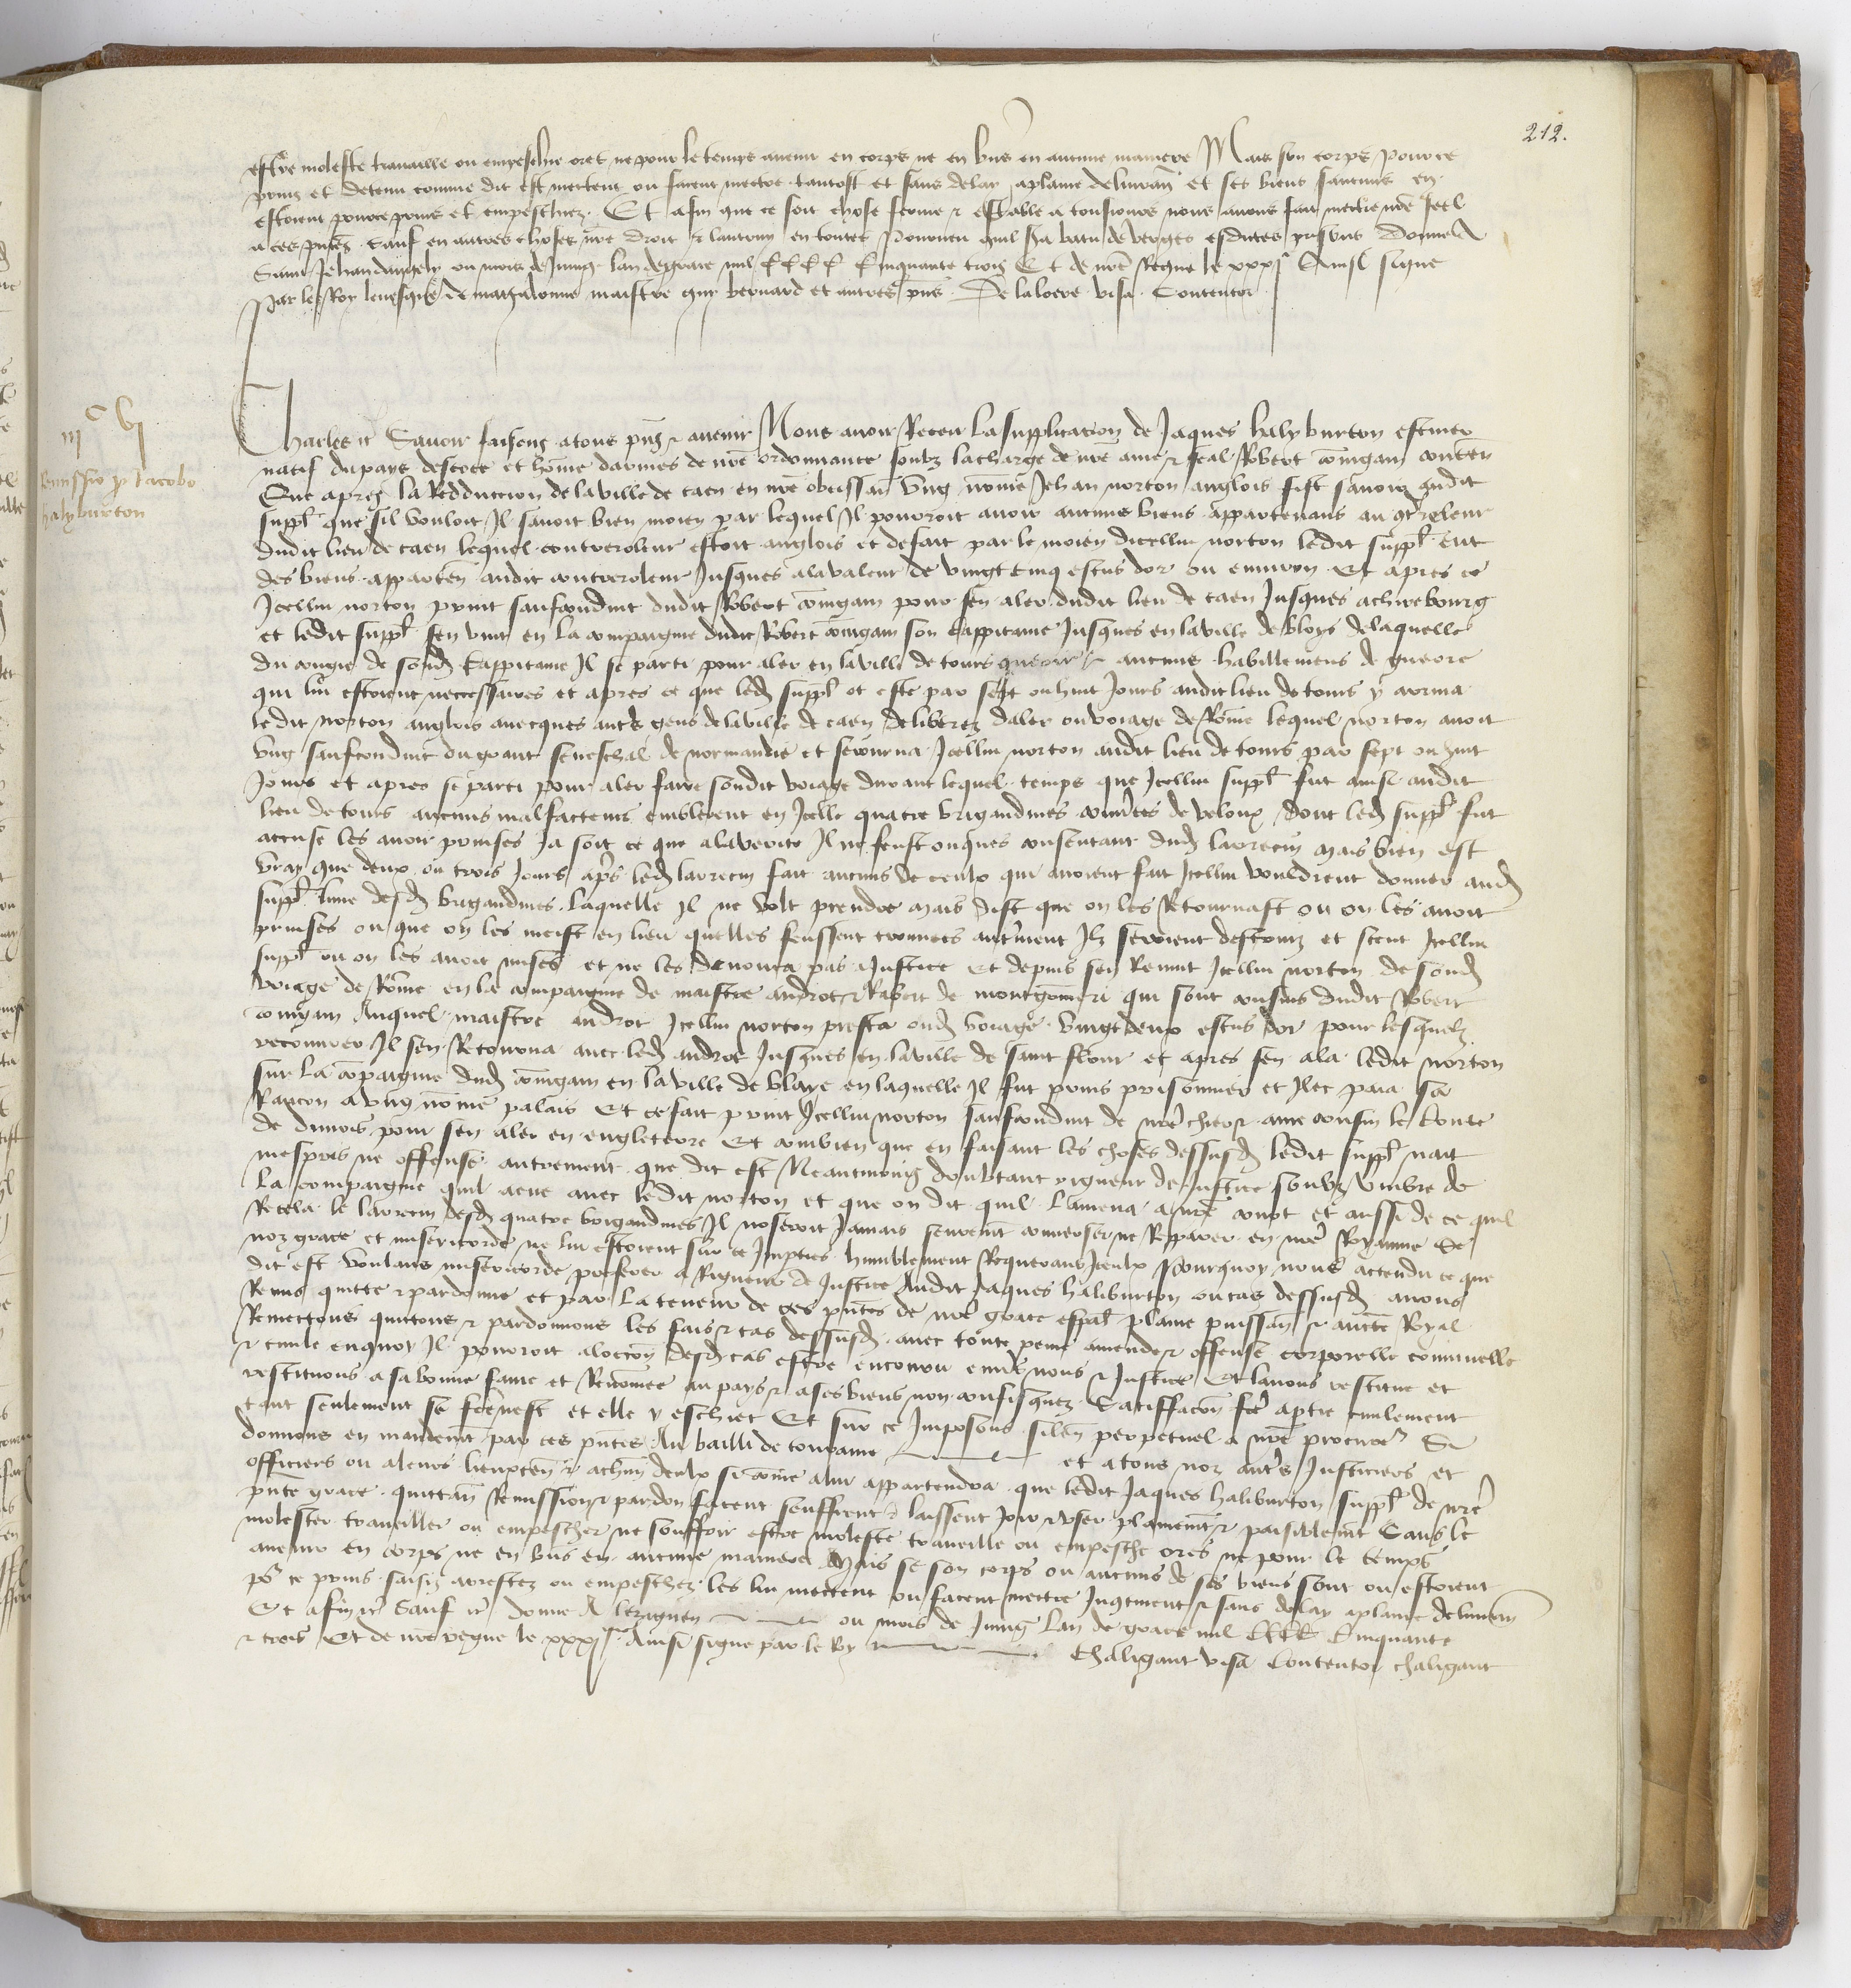 212.
estre moleste travaille ou empesche ores ne pour le temps avenir en corps ne en biens en aucune maniere Mais son corps pour ce
prins et detenu comme dit est mettent ou facent mectre tantost et sans delay a plaine delivran et ses biens s'aucuns en
estoient pour ce prins et empeschez. Et afin que ce soit chose ferme & estable a tousjours nous avons fait mectre nre seel
a ces pntes Sauf en autres choses nre droit & lautruy en toutes Pourveu quil sera batu de verges esdites prisons Donne A
Saint Jehan dangely ou mois de Juing lan de grace mil CCCC Cinquante trois Et de nre Regne le xxxjᵉ Ainsi signe
Par le Roy levesque de magalonne maistre guy bernard et autres pns. De laloere visa Contentor
iijᶜ vj
Remissio p Jacobo
halyburton
Charles &c Savoir faisons a tous pns & avenir Nous avoir Receu La supplicacion de Jaques halyburton escuier
natif du pays descoce et home darmes de nre ordonnance soubz la charge de nre ame & feal Robert conigam conten
Que apres la Redducion de la ville de caen en nre obeissan ung nome Jehan norton anglois fist savoir audit
suppl que sil vouloit Il savoit bien moien par lequel Il pourroit avoir aucuns biens appartenans au contreroleur
dudit lieu de caen lequel contreroleur estoit anglois et de fait par le moien dicellui norton ledit suppl eut
des biens apparten audit contreroleur Jusques a la valeur de vingt cinq escus dor ou environ Et apres ce
Icellui norton print saufconduit dudit Robert conigam pour sen aler dudit lieu de caen Jusques a chirebourg
et ledit suppl sen vint en la compaignie dudit Robert conigam son cappitaine Jusques en la ville de bloys de laquelle
du congie de sond cappitaine Il se parti pour aler en la ville de tours querir aucuns habillemens de guerre
qui lui estoient neccessaires et apres ce que led suppl ot este par sept ou huit Jours audit lieu de tours y arriva
le dit norton anglois avecques autres gens de la ville de caen deliberez daler ou voiage de Rome lequel norton avoit
ung saufconduit du grant seneschal de normandie et sejourna Icellui norton audit lieu de tours par sept ou huit
Jours et apres se parti pour aler faire sondit voiage durant lequel temps que Icellui suppl fut ainsi audit
lieu de tours aucuns malfacteurs emblerent en Icelle quatre brigandines couvertes de veloux dont led suppl fut
accuse les avoir prinses Ja soit ce que a la verite Il ne feust onques consentant dud larrecin Mais bien est
vray que deux ou trois Jours apres led larrecin fait aucuns de ceulx qui avoient fait Icellui vouldrent donner aud
suppl lune desd brigandines laquelle Il ne volt prendre mais dist que on les Retournast ou on les avoit
prinses ou que on les meist en lieu quelles feussent trouvees autrement Ilz seroient destruiz et sceut Icellui
suppl ou on les avoit mises et ne les denonca pas a Justice Et depuis sen Revint Icellui norton de sond
voiage de Rome en la compaignie de maistre androt & Robert de montgomeri qui sont cousins dudit Robert
conigam Auquel maistre androt Icellui norton presta oud voiage vingt deux escus dor pour lesquelz
recouvrer Il sen Retourna avec led androt Jusques en la ville de saint flour et apres sen ala ledit norton
sur La compaignie dud conigam en la ville de blaye en laquelle Il fut prins prisonnier et Ilec paia sa
Rancon a ung nome palais Et ce fait print Icellui norton saufconduit de nre chier & ame cousin le Conte
de dunois pour sen aler en engleterre Et combien que en faisant les choses dessusd ledit suppl nait
mespris ne offense autrement que dit est Neantmoins doubtant rigueur de Justice soubz umbre de
La compaignie quil a eue avec ledit norton et que on dit quil lamena a nre et aussi de ce quil
Recela le larrecin desd quatre brigandines Il noseroit Jamais seurement converser ne Reparer en nre Royaume Se
noz grace et misericorde ne lui estoient sur ce Imparties humblement Requerant Icelles Pourquoy nous actendu ce que
dit est voulans misericorde preferer a Rigueur de Justice Audit Jaques haliburton ou cas dessusd avons
Remis quitte & pardonne et par la teneur de ces pntes de nre grace espal plaine puissan & aucte Royal
Remectons quictons & pardonnons les fais & cas dessusd avec toute peine amende & offense corporelle criminelle
& civile en quoy Il pourroit a loccon desd cas estre encouru envers nous & Justice Et lavons restitue et
restituons a sa bonne fame et Renomee au pays & a ses biens non confisquez Satiffacon fce a ptie civilement
tant seulement se fce nest et elle y eschiet Et sur ce Imposons silen perpetuel a nre procureur Si
donnons en mandement par ces pntes Au bailli de touraine et a tous noz autres Justiciers et
officiers ou a leurs lieuxten & a chun deulx si come a lui appartendra que ledit Jaques haliburton suppl de nre
pnte grace quittan Remission & pardon facent seuffrent & laissent Joir & user plainement & paisiblement Sans le
molester travailler ou empescher ne souffrir estre moleste travaille ou empesche ores ne pour le temps
avenir en corps ne en biens en aucune maniere Mais se son corps ou aucuns de ses biens sont ou estoient
por ce prins saisiz arrestez ou empeschez les lui mettent ou facent mectre Incontinent & sans delay a plaine delivran
Et afin &c Sauf &c Donne A lezignen ou mois de Juing Lan de grace mil CCCC Cinquante
& trois Et de nre regne le xxxjᵉ Ainsi signe par le Roy Chaligant visa Contentor chaligant